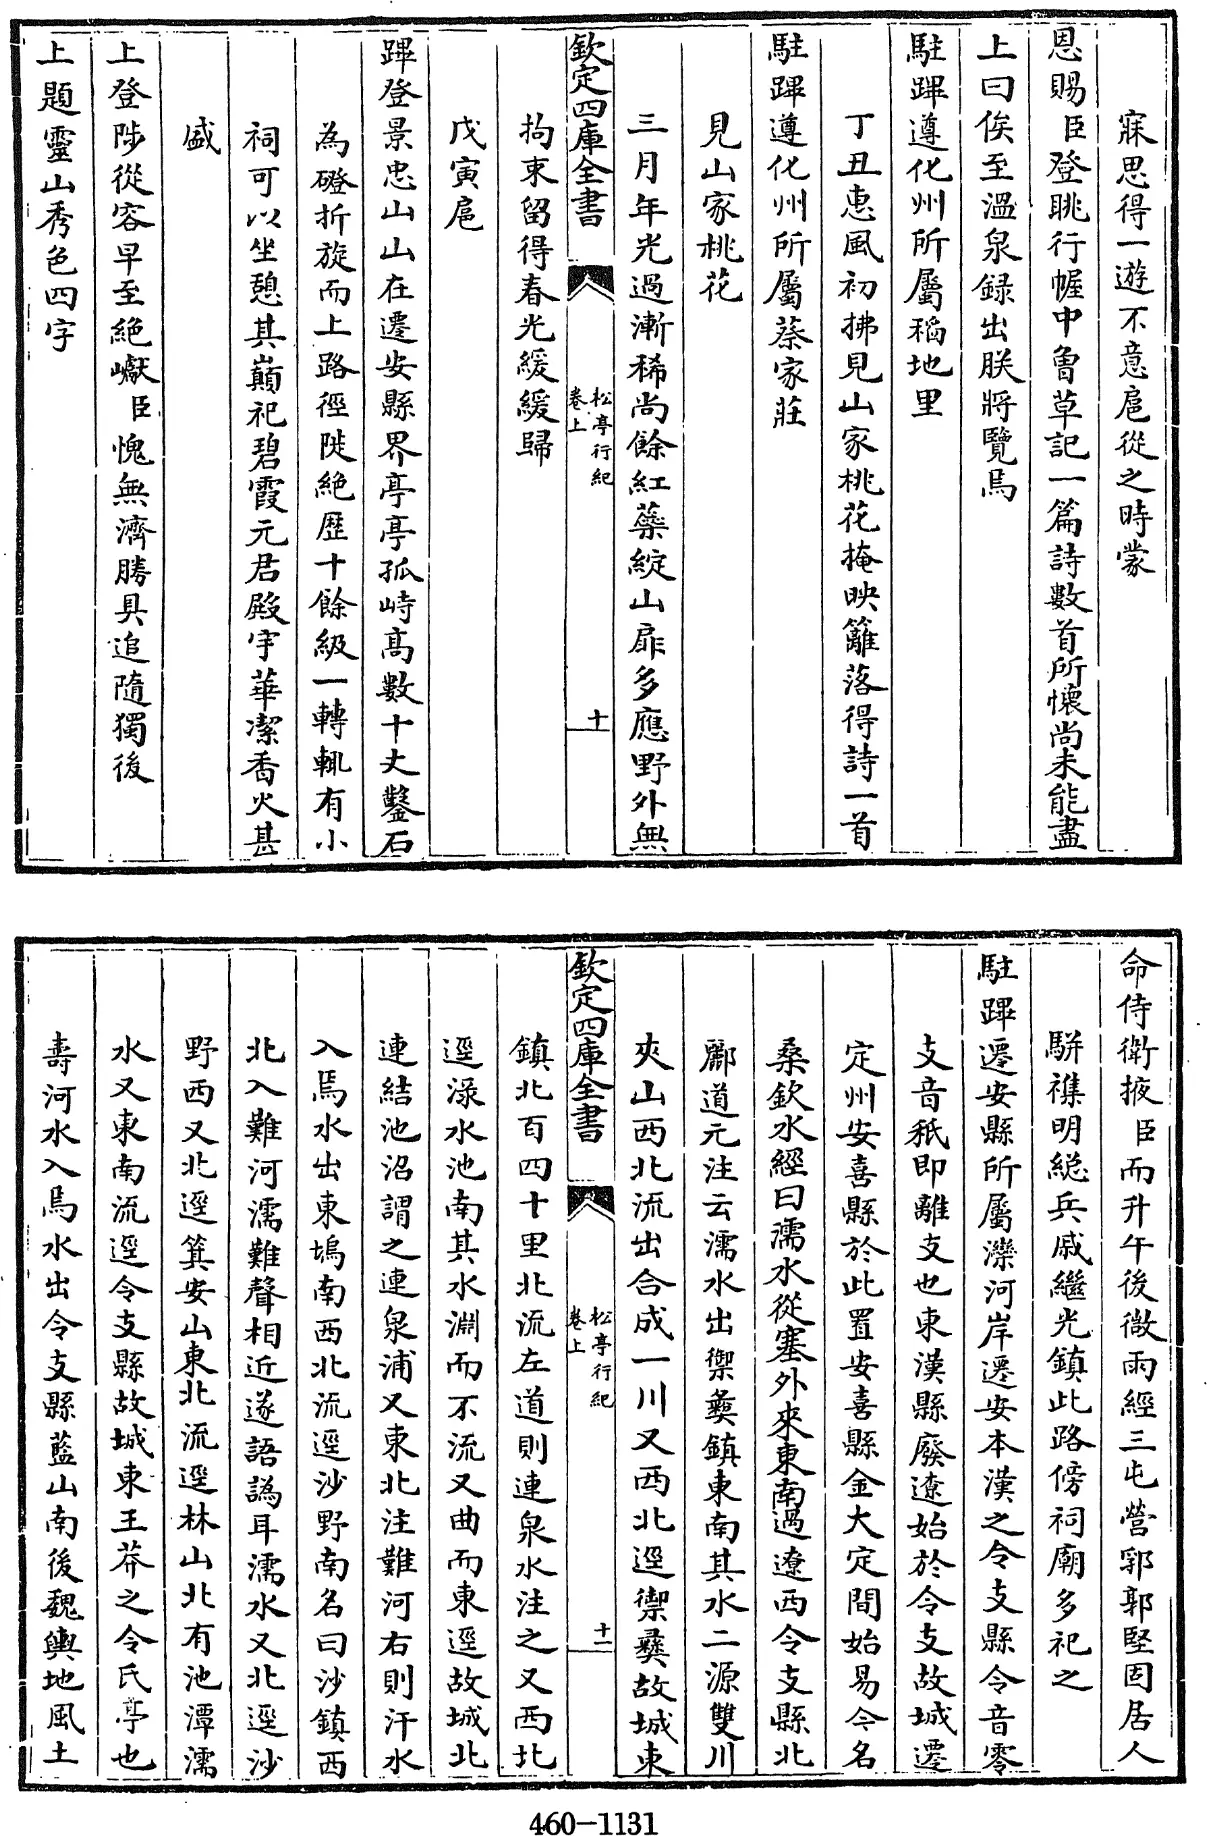 寐思得一遊不意扈從之時蒙
恩賜臣登眺行幄中魯草記一篇詩數首所懷尚未能盡
上曰俟至溫泉録出朕將覽焉
駐蹕遵化州所屬稻地里
丁丑惠風初拂見山家桃花掩映籬落得詩一首
駐蹕遵化州所屬蔡家莊
見山家桃花
三月年光過漸稀尚餘紅蘂綻山扉多應野外無
欽定四庫全書
松亭行紀
卷上
十
拘束留得春光緩緩歸
戊寅扈
蹕登景忠山山在遷安縣界亭亭孤峙高數十丈鑿石
為磴折旋而上路徑陡絶歴十餘級一轉輒有小
祠可以坐憩其巔祀碧霞元君殿宇華潔香火甚
盛
上登陟從容早至絶巘臣愧無濟勝具追隨獨後
上題靈山秀色四字
命侍衛掖臣而升午後微雨經三屯營郛郭堅固居人
駢襍明總兵戚繼光鎮此路傍祠廟多祀之
駐蹕遷安縣所屬灤河岸遷安本漢之令支縣令音零
支音秖即離支也東漢縣廢遼始於令支故城遷
定州安喜縣於此置安喜縣金大定間始易今名
桑欽水經曰濡水從塞外來東南過遼西令支縣北
酈道元注云濡水出禦夷鎮東南其水二源雙川
夾山西北流出合成一川又西北逕禦彞故城東
欽定四庫全書
松亭行紀
卷上
十一
鎮北百四十里北流左道則連泉水注之又西北
逕渌水池南其水淵而不流又曲而東逕故城北
連結池沼謂之連泉浦又東北注難河右則汗水
入焉水出東塢南西北流逕沙野南名曰沙鎮西
北入難河濡難聲相近遂語譌耳濡水又北逕沙
野西又北逕箕安山東北流逕林山北有池潭濡
水又東南流逕令支縣故城東王莽之令氏亭也
壽河水入焉水出令支縣藍山南後魏輿地風土
460-1131